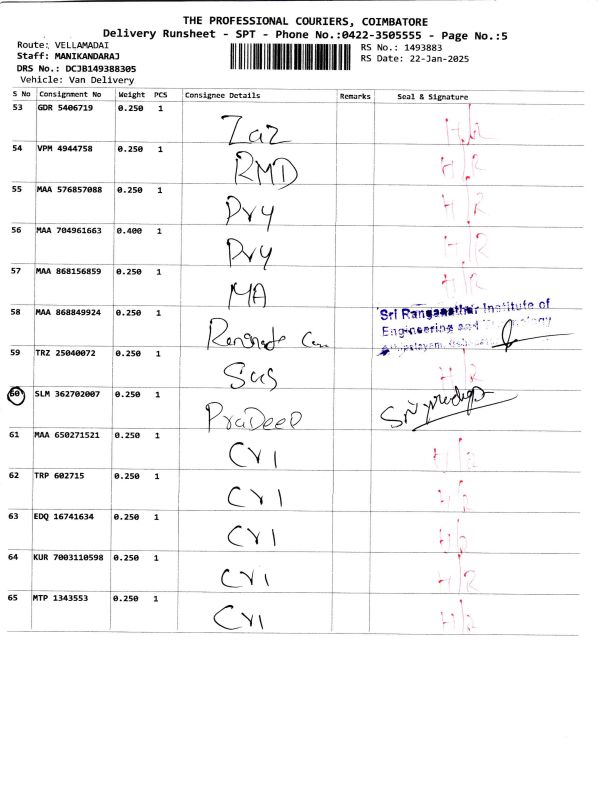 THE PROFESSIONAL COURIERS, COIMBATORE
Delivery Runsheet - SPT - Phone No.:0422-3505555 - Page No.:5
Route: VELLAMADAI
Staff: MANIKANDARAJ
DRS No.: DCJB149388305
Vehicle: Van Delivery
RS No.: 1493883
RS Date: 22-Jan-2025
S No Consignment No Weight PCS Consignee Details Remarks Seal & Signature
53 GDR 5406719 0.250 1 Zaz H/R
54 VPM 4944758 0.250 1 RMD H/R
55 MAA 576857088 0.250 1 Pry H/R
56 MAA 704961663 0.400 1 Pry H/R
57 MAA 868156859 0.250 1 MA H/R
58 MAA 868849924 0.250 1
Sri Ranganathar Institute of
Engineering and Technology
59 TRZ 25040072 0.250 1 H/R
60 SLM 362702007 0.250 1 PraDeep
61 MAA 650271521 0.250 1 CV1 H/R
62 TRP 602715 0.250 1 CV1 H/R
63 EDQ 16741634 0.250 1 CV1 H/R
64 KUR 7003110598 0.250 1 CV1 H/R
65 MTP 1343553 0.250 1 CV1 H/R